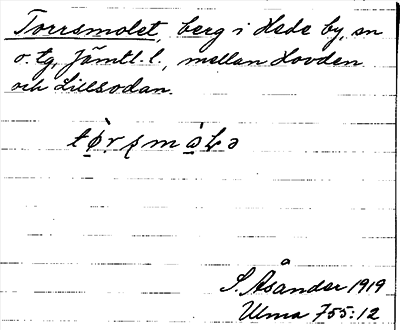 Torrsmolet, berg i Hede by, sn
o. tg, Jämtl. l., mellan Lovden
och Lillsodan.
S. Åsander 1919
Ulma 755:12